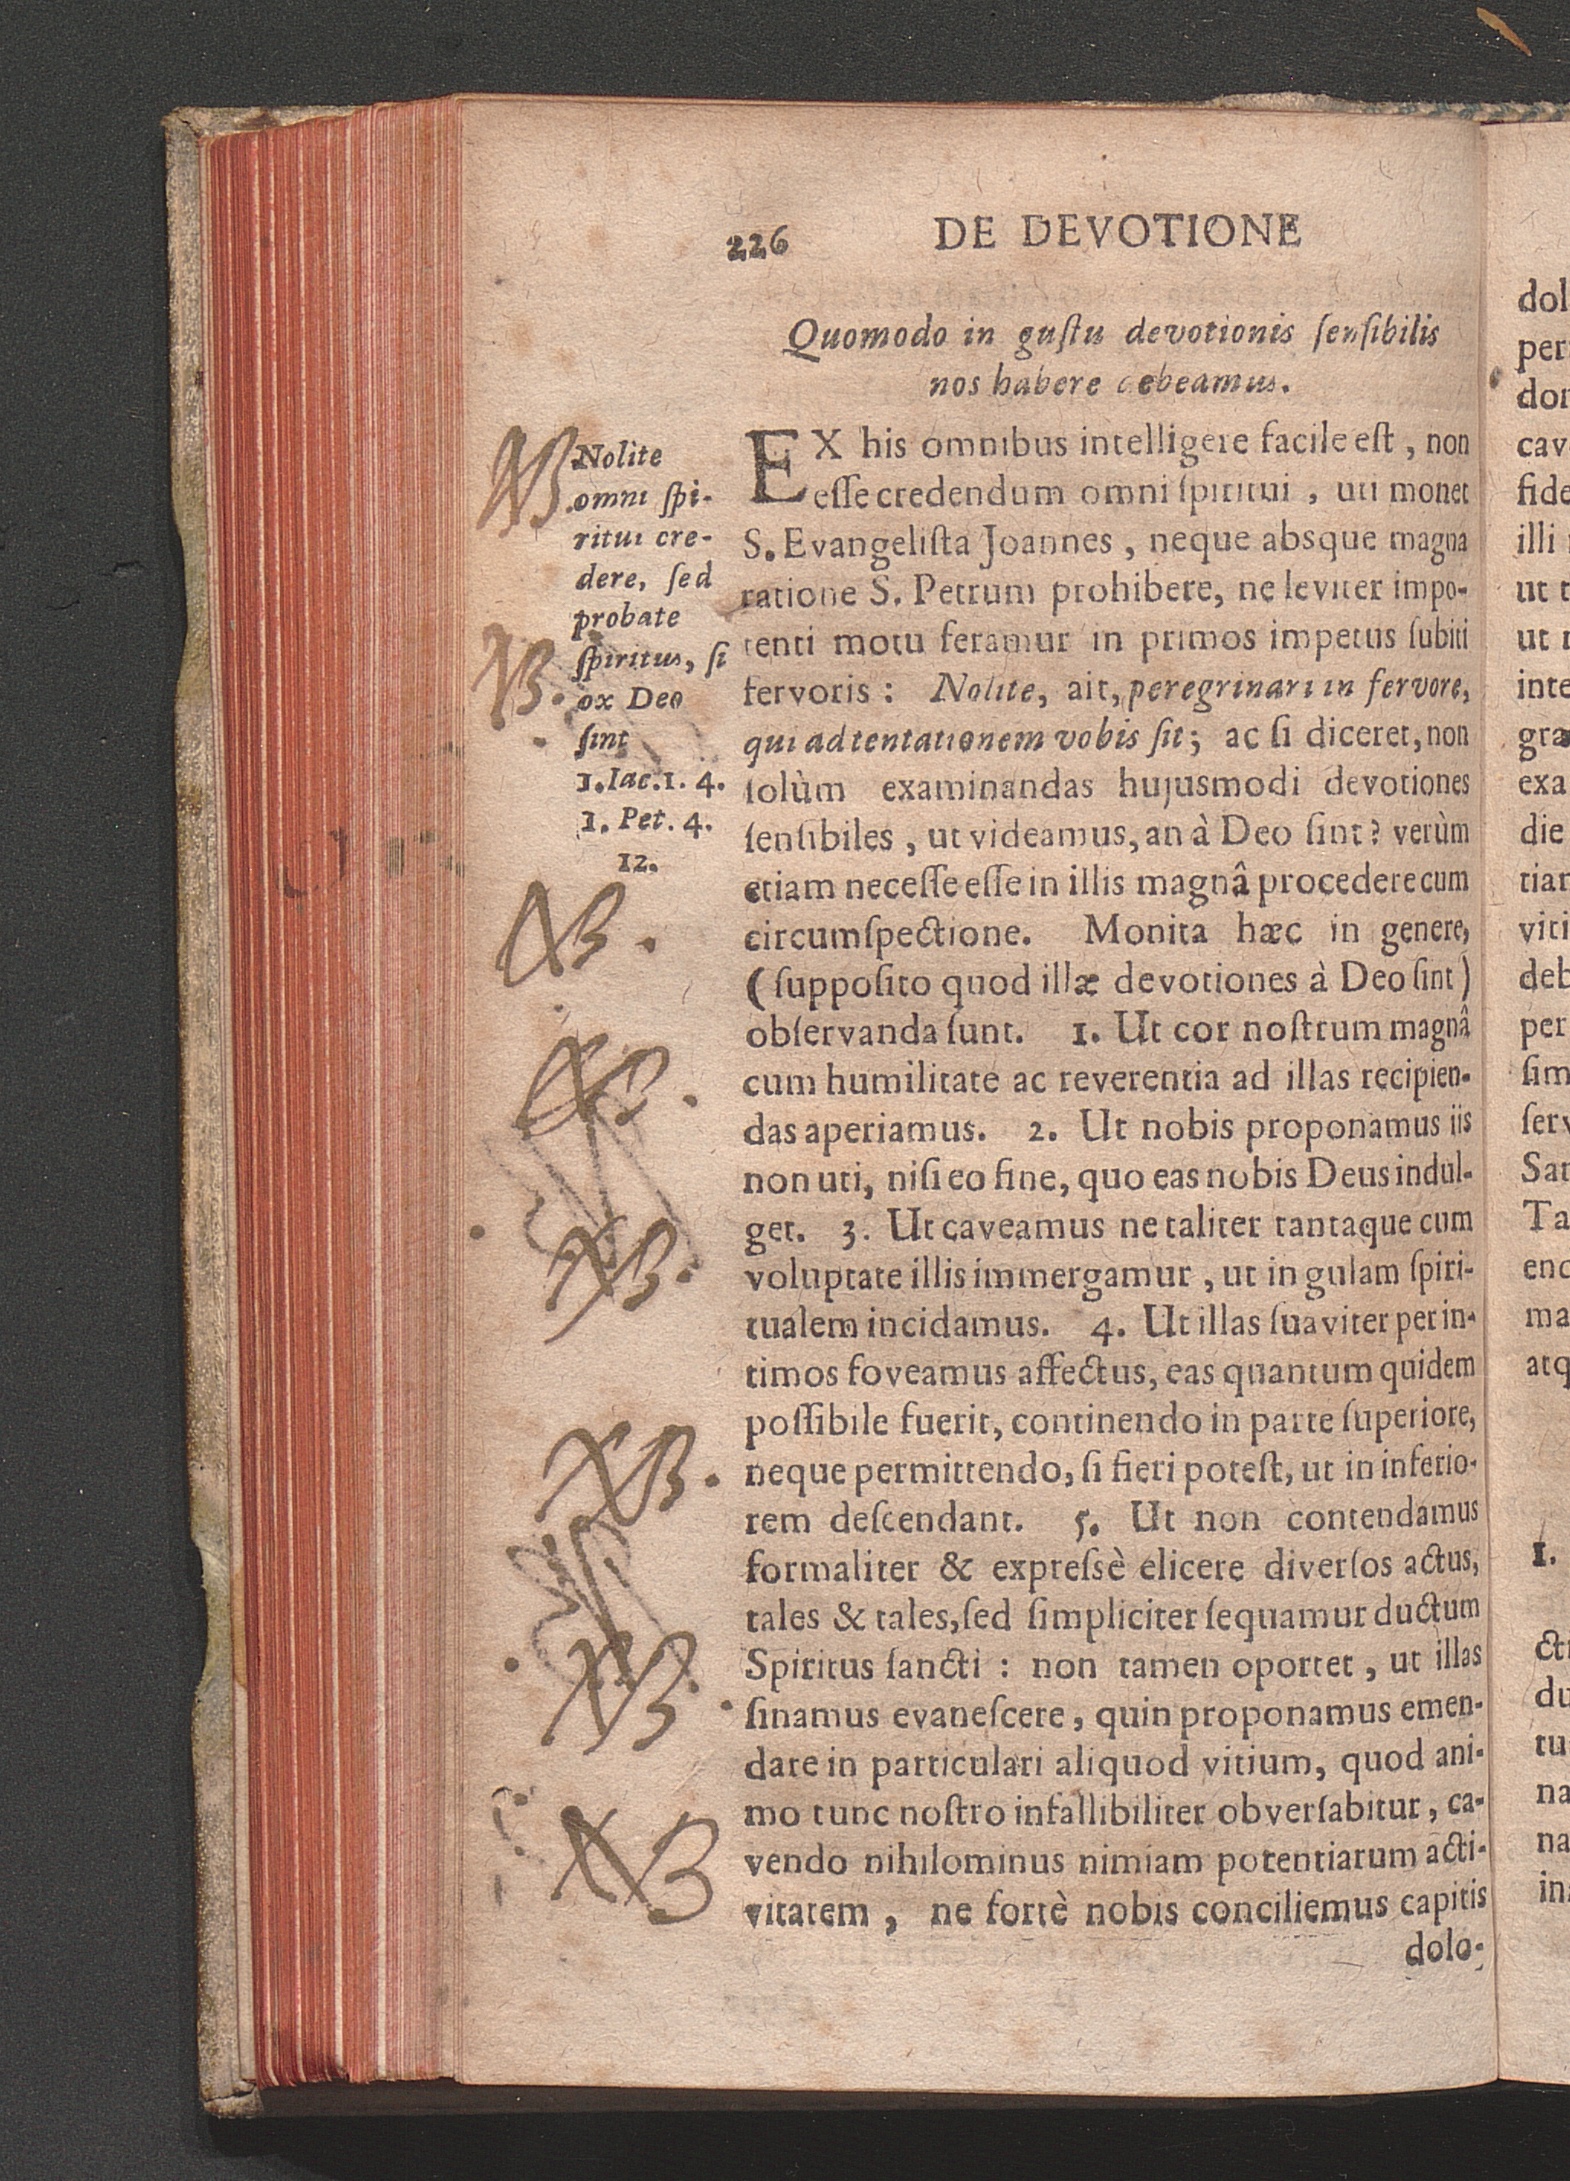 226 DE DEVOTIONE
Quomodo in guſtu devotionis ſenſibilis
nos habere debeamus.
EX his omnibus intelligere facile eſt, non
eſſe credendum omni ſpiritui, uti monet
S. Evangeliſta Joannes, neque absque magna
ratione S. Petrum prohibere, ne leviter impo-
tenti motu feramur in primos impetus ſubiti
fervoris: Nolite, ait, peregrinari in fervore,
qui ad tentationem vobis ſit; ac ſi diceret, non
ſolùm examinandas hujusmodi devotiones
ſenſibiles, ut videamus, an à Deo ſint? verùm
etiam neceſſe eſſe in illis magnâ procedere cum
circumſpectione. Monita hæc in genere,
(ſuppoſito quod illæ devotiones à Deo ſint)
obſervanda ſunt. 1. Ut cor noſtrum magnâ
cum humilitate ac reverentia ad illas recipien-
das aperiamus. 2. Ut nobis proponamus iis
non uti, niſi eo fine, quo eas nobis Deus indul-
get. 3. Ut caveamus ne taliter tantaque cum
voluptate illis immergamur, ut in gulam ſpiri-
tualem incidamus. 4. Ut illas ſuaviter per in-
timos foveamus affectus, eas quantum quidem
poſſibile fuerit, continendo in parte ſuperiore,
neque permittendo, ſi fieri poteſt, ut in inferio-
rem deſcendant. 5. Ut non contendamus
formaliter & expreſsè elicere diverſos actus,
tales & tales, ſed ſimpliciter ſequamur ductum
Spiritus ſancti: non tamen oportet, ut illas
ſinamus evaneſcere, quin proponamus emen-
dare in particulari aliquod vitium, quod ani-
mo tunc noſtro infallibiliter obverſabitur, ca-
vendo nihilominus nimiam potentiarum acti-
vitatem, ne fortè nobis conciliemus capitis
dolo-
Nolite
omni ſpi-
ritui cre-
dere, ſed
probate
ſpiritus, ſi
ox Deo
ſint
1. Iac. 1. 4.
1. Pet. 4.
12.
NB.
NB.
NB.
NB.
NB.
NB.
NB.
NB
dol
per
dor
cav
fide
illi
ut t
ut
inte
gra
exa
die
tiar
viti
deb
per
ſim
ſerv
San
Ta
enc
ma
atq
1.
cti
du
tu
na
na
in